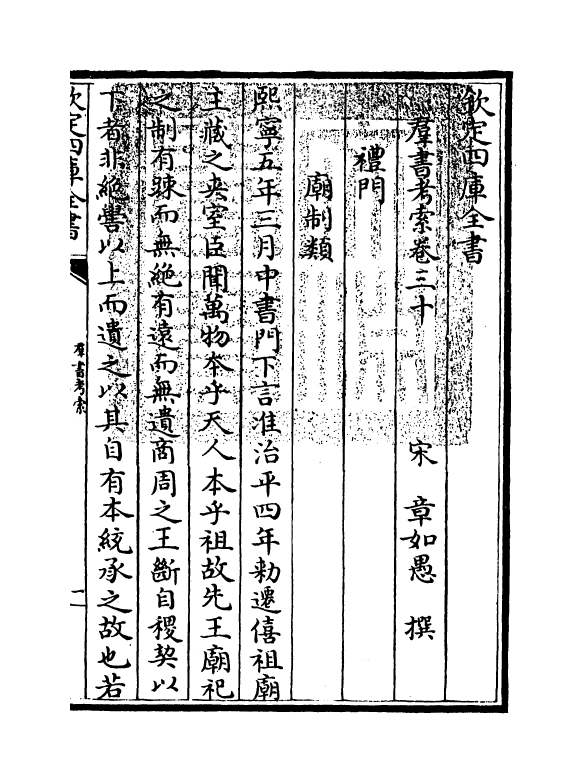 欽定四庫全書
羣書考索卷三十
宋　章如愚　撰
禮門
廟制類
熙寧五年三月中書門下言准治平四年勅遷僖祖廟
主藏之夾室臣聞萬物夲乎天人本乎祖故先王廟祀
之制有疎而無絶有遠而無遺商周之王斷自稷契以
下者非絶嚳以上而遺之以其自有本統承之故也若
欽定四庫全書
羣書考索